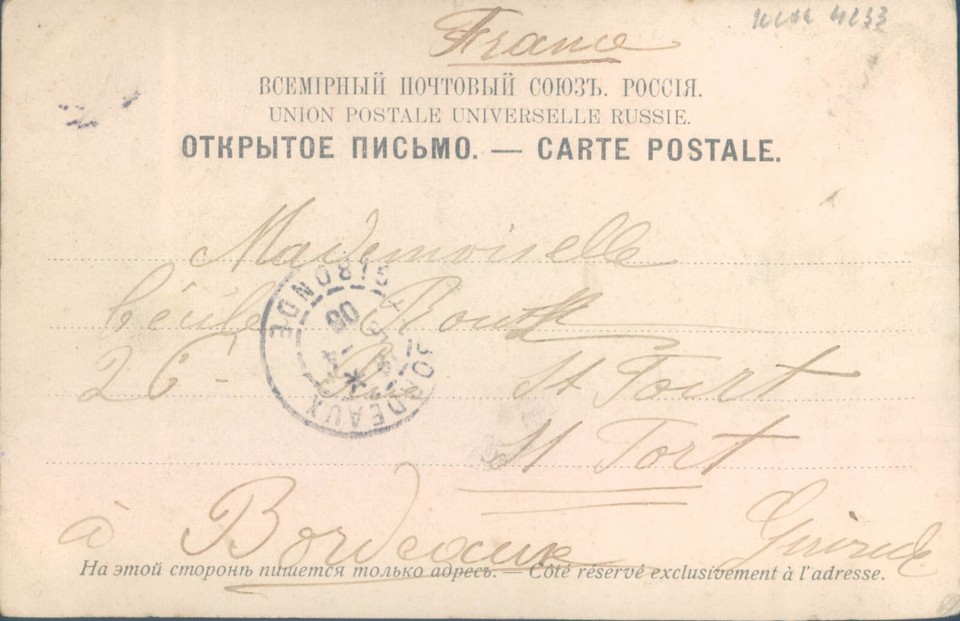 France
ВСЕМІРНЫЙ ПОЧТОВЫЙ СОЮЗЪ. РОССІЯ.
UNION POSTALE UNIVERSELLE RUSSIE.
ОТКРЫТОЕ ПИСЬМО. — CARTE POSTALE.
Mademoiselle
Cécile
26 - Rue St Fort
St Fort
à Bordeaux Gironde
BORDEAUX GIRONDE
На этой сторонѣ пишется только адресъ. — Côté réservé exclusivement à l'adresse.